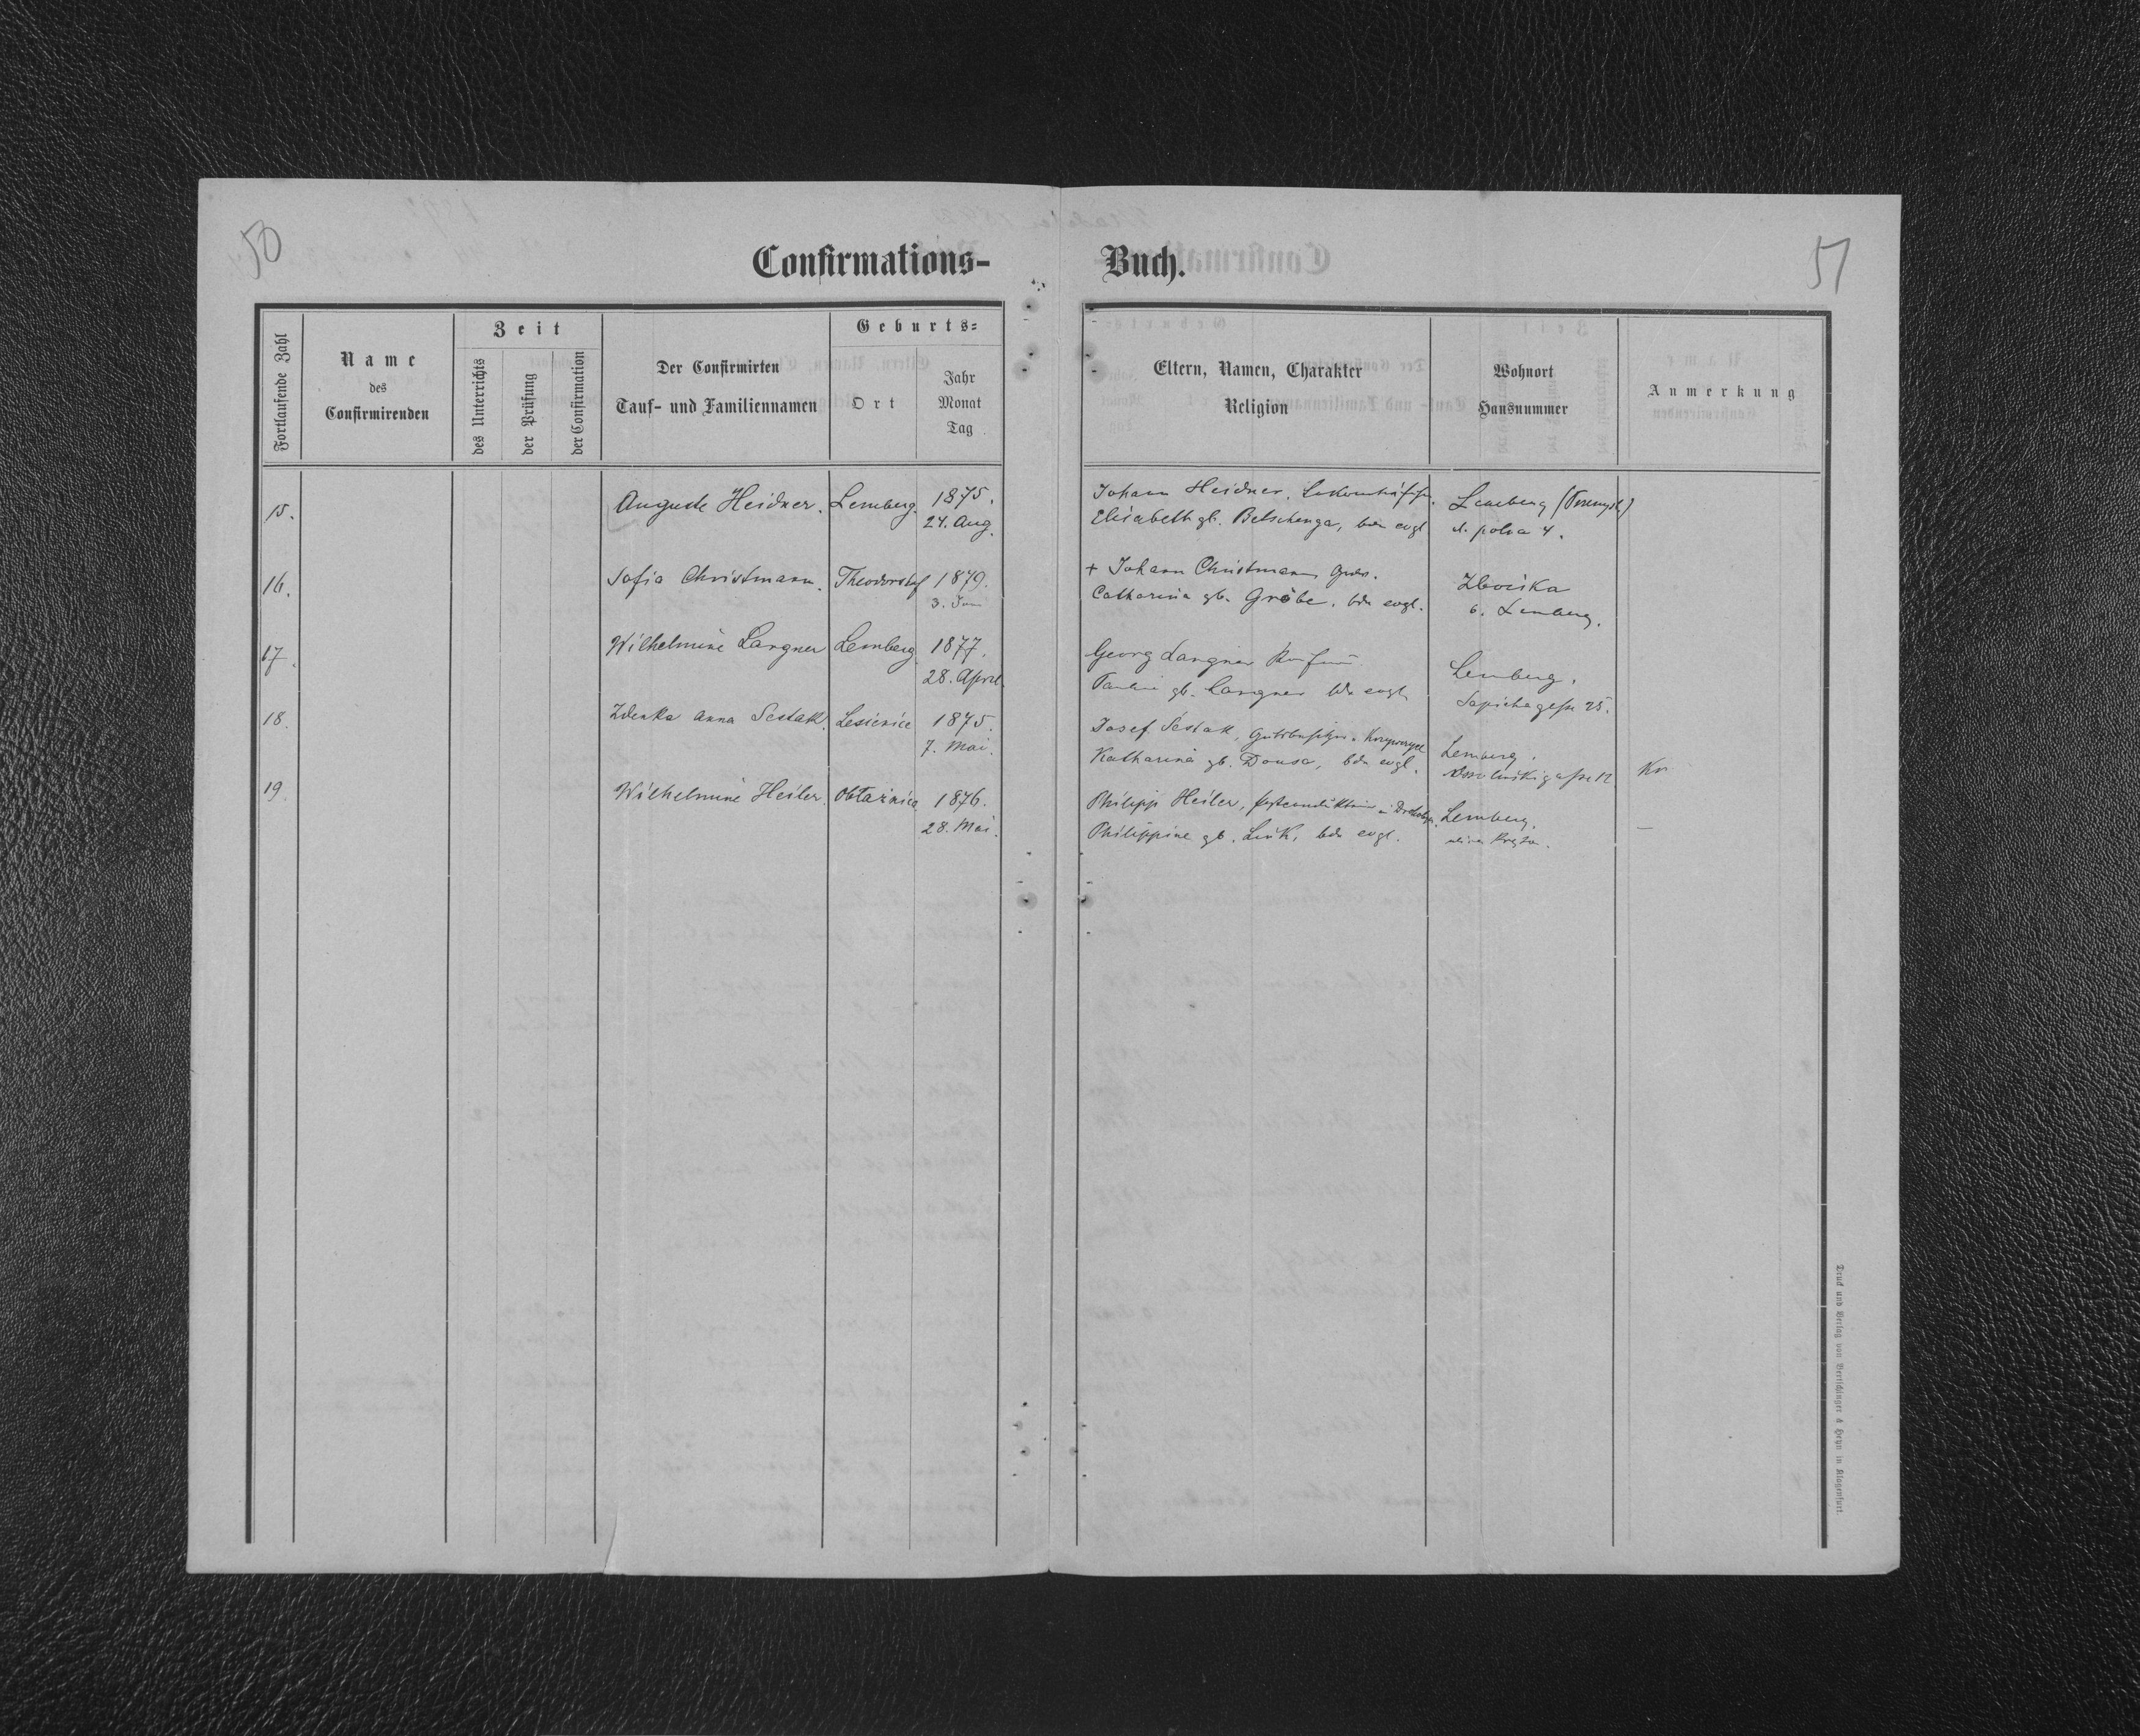 50
51
Confirmations-
Buch.
Fortlaufende Zahl
Name
des
Confirmirenden
Zeit
des Unterrichts
der Prüfung
der Confirmation
Der Confirmirten
Tauf- und Familiennamen
Geburts-
Ort
Jahr
Monat
Tag
Eltern, Namen, Charakter
Religion
Wohnort
Hausnummer
Anmerkung
15.
Auguste Heidner.
Lemberg.
1875.
24. Aug.
Johann Heidner,
Elisabeth gb. Betschenga, bde evgl
Lemberg
polna 4.
16.
Sofia Christmann.
Theodorshof
1879.
3. Juni
+ Johann Christmann
Catharina gb. Gröbe, bde evgl.
Zboiska
b. Lemberg.
17.
Wilhelmine Langner
Lemberg
1877.
28. April.
Georg Langner
gb. Langner bde evgl
Lemberg.
Sapiehagasse 25.
18.
Zdenka Anna Sestak
Lesienice
1875.
7. Mai.
Josef Šestak, Gutsbesitzer
Katharina gb. Dousa, bde evgl.
Lemberg.
19.
Wilhelmine Heiler.
1876.
28. Mai.
Philipp Heiler,
Philippine gb. Link, bde evgl.
Lemberg.
ulica
–
Druck und Verlag von Bertschinger & Heyn in Klagenfurt.